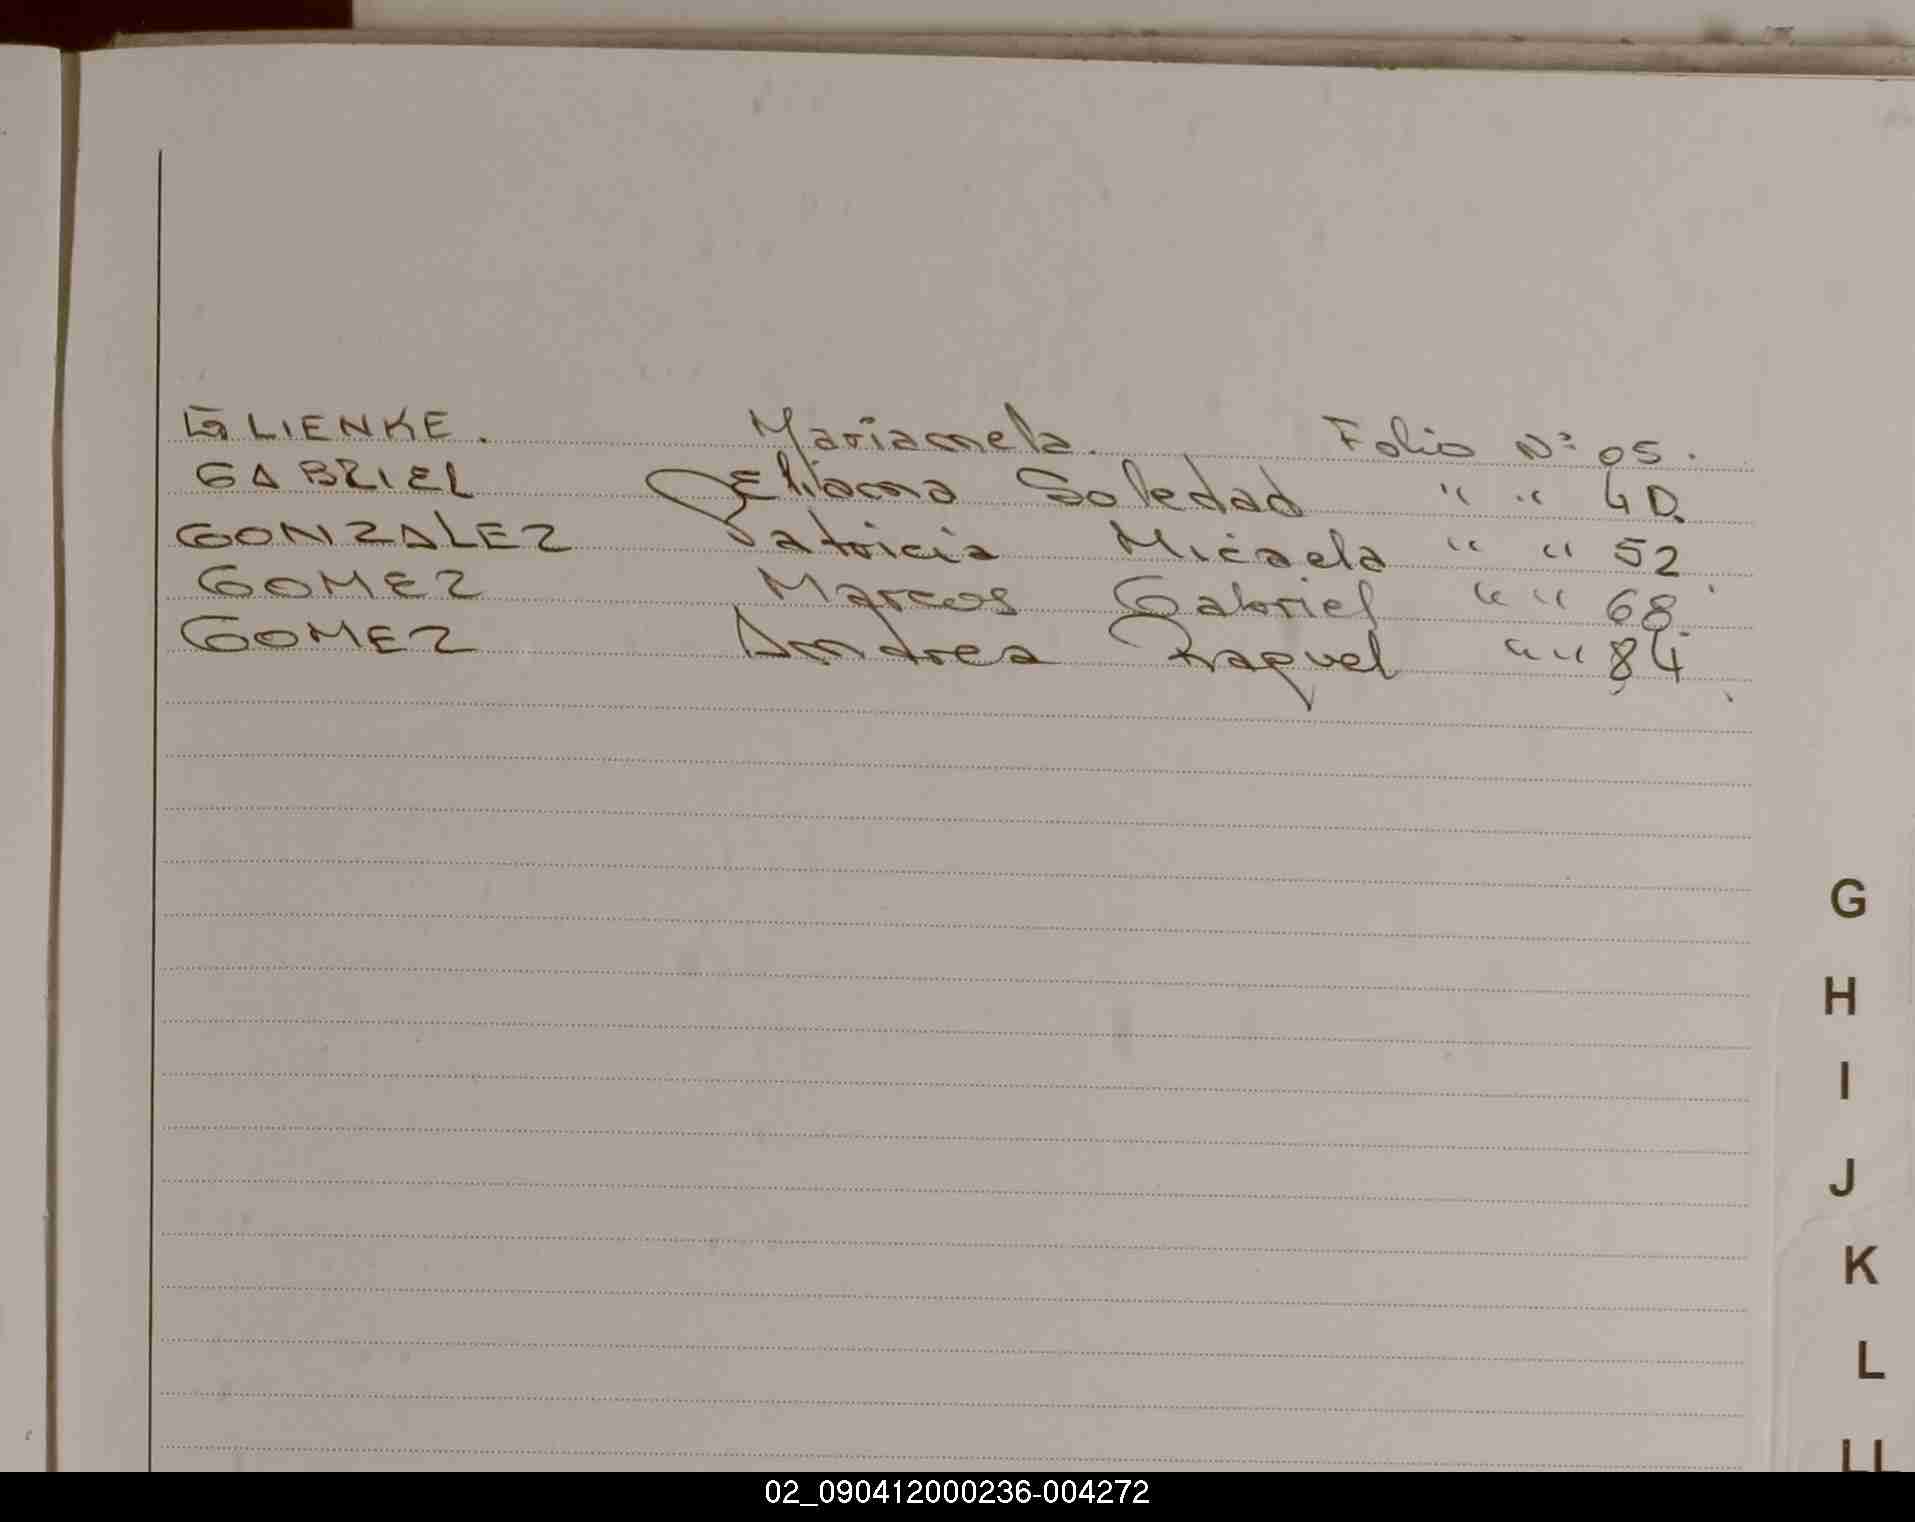 GLIENKE. Mariamela. Folio Nº 05.
GABRIEL Eliana Soledad " " 40.
GONZALEZ Patricia Micaela " " 52
GOMEZ Marcos Gabriel " " 68
GOMEZ Andrea Raquel " " 84
G
H
I
J
K
L
LL
02_090412000236-004272